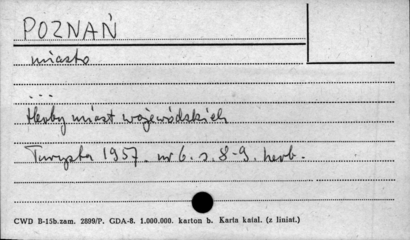 POZNAŃ
miasto
...
Herby miast wojewódzkich
Turysta 1957. nr 6. s. 8-9. herb.
CWD B-15b.zam. 2899/P. GDA-8. 1.000.000. karton b. Karta katal. (z liniat.)